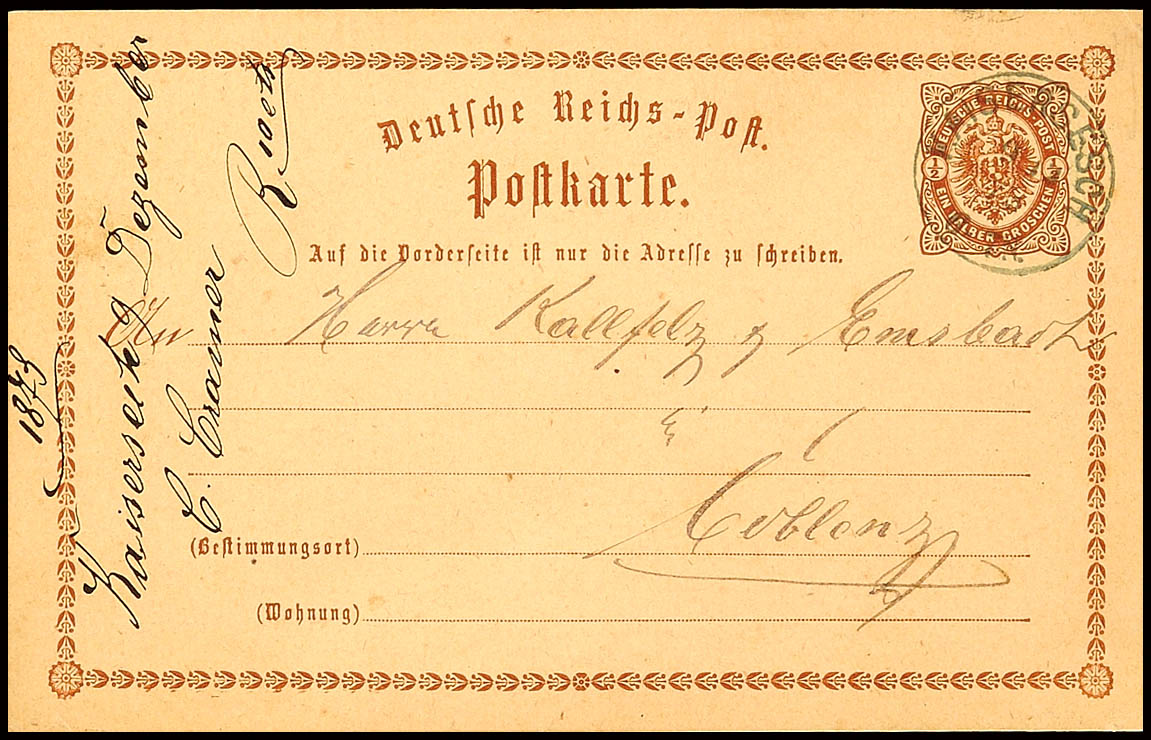 Deutsche Reichs-Post.
Postkarte.
Auf die Vorderseite ist nur die Adresse zu schreiben.
DEUTSCHE REICHS-POST
1/2 1/2
EIN HALBER GROSCHEN
SESCH
An Herrn Kallfelz & Emsbach
Coblenz
(Bestimmungsort)
(Wohnung)
1875
Dezember
C. Cramer